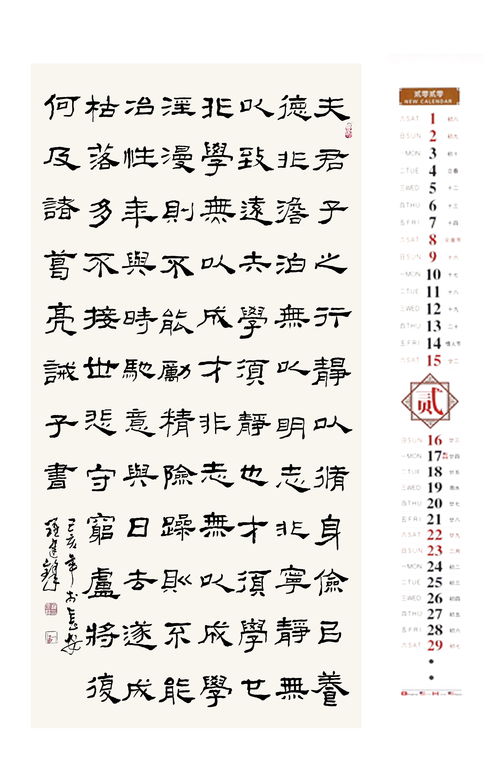 夫君子之行靜以脩身儉以養
德非澹泊無以明志非寧靜無
以致遠夫學須靜也才須學也
非學無以成才非志無以成學
淫漫則不能勵精險躁則不能
冶性年與時馳意與日去遂成
枯落多不接世悲守窮廬將復
何及諸葛亮誡子書
己亥年於長安
貳零貳零
NEW CALENDAR
六 SAT 1 初八
日 SUN 2 初九
一 MON 3 初十
二 TUE 4 立春
三 WED 5 十二
四 THU 6 十三
五 FRI 7 十四
六 SAT 8 元宵节
日 SUN 9 十六
一 MON 10 十七
二 TUE 11 十八
三 WED 12 十九
四 THU 13 二十
五 FRI 14 情人节
六 SAT 15 廿二
贰
日 SUN 16 廿三
一 MON 17 廿四
二 TUE 18 廿五
三 WED 19 雨水
四 THU 20 廿七
五 FRI 21 廿八
六 SAT 22 廿九
日 SUN 23 二月
一 MON 24 初二
二 TUE 25 初三
三 WED 26 初四
四 THU 27 初五
五 FRI 28 初六
六 SAT 29 初七